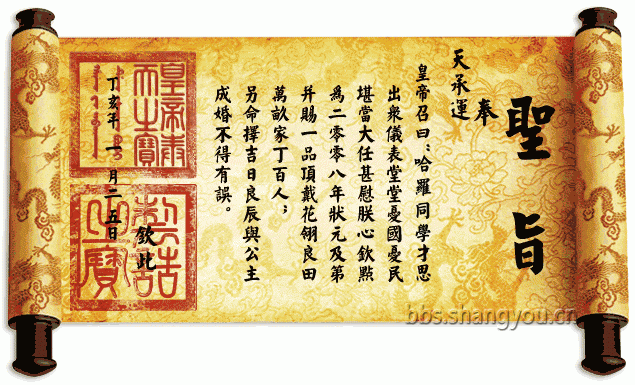 聖旨
奉
天承運
皇帝召曰：哈羅同學才思
出衆儀表堂堂憂國憂民
堪當大任甚慰朕心欽點
爲二零零八年狀元及第
并賜一品頂戴花翎良田
萬畝家丁百人；
另命擇吉日良辰與公主
成婚不得有誤。
欽此
丁亥年一月二五日
皇帝奉
天之寶
制誥
之寶
bbs.shangyou.cn